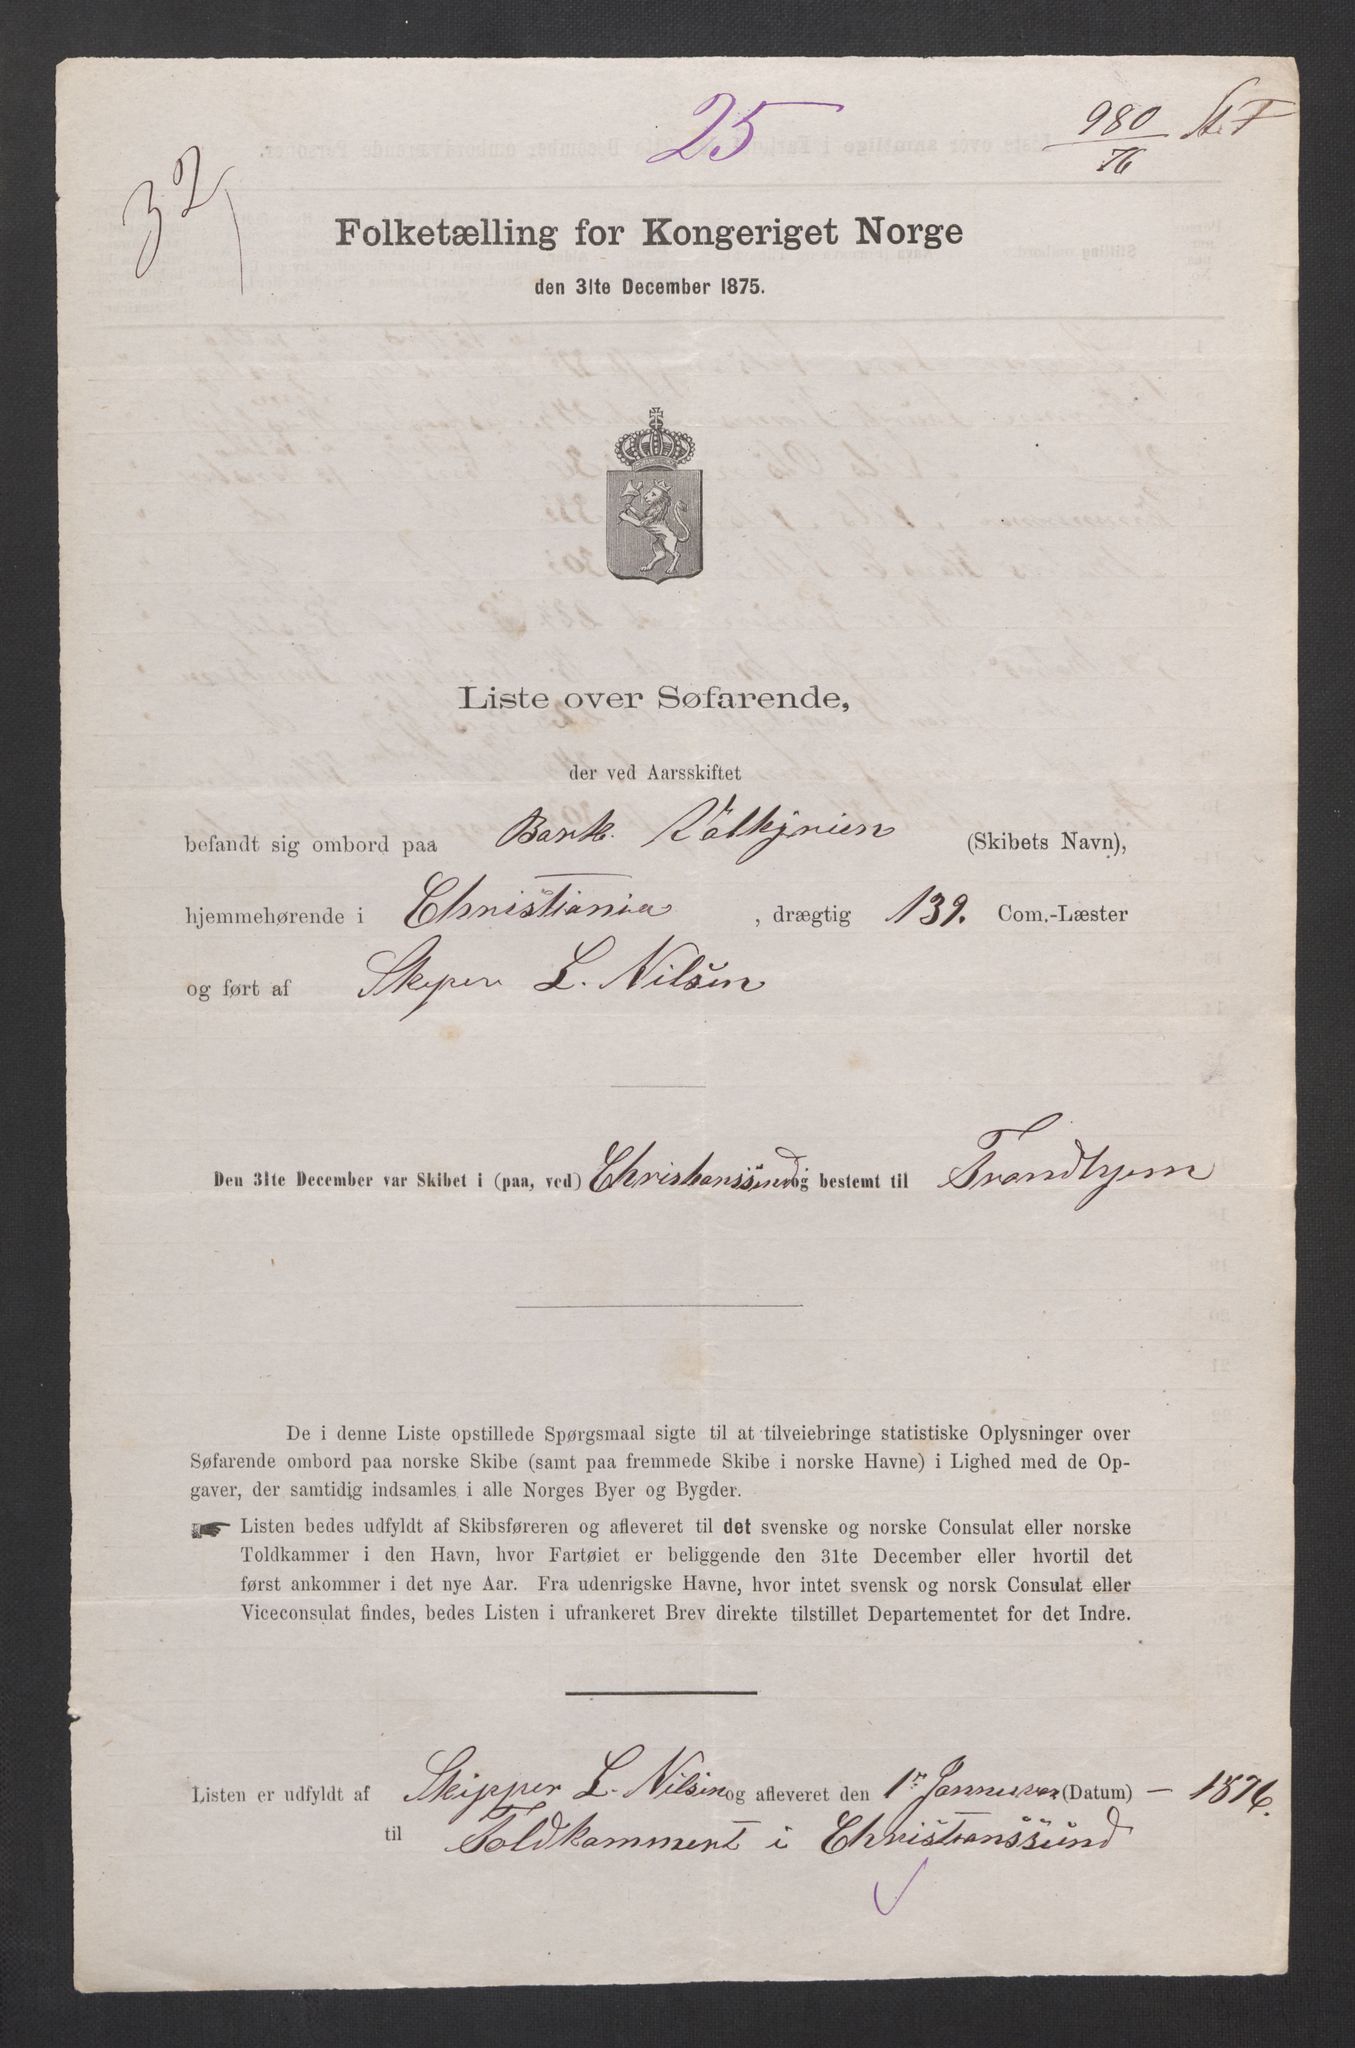 25
980/76 St. F
32
Folketælling for Kongeriget Norge
den 31te December 1875.
Liste over Søfarende,
der ved Aarsskiftet
befandt sig ombord paa Bark. Valkyrien (Skibets Navn),
hjemmehørende i Christiania, drægtig 139. Com.-Læster
og ført af Skeper L. Nilsen
Den 31te December var Skibet i (paa, ved) Christianssund og bestemt til Trondhjem
De i denne Liste opstillede Spørgsmaal sigte til at tilveiebringe statistiske Oplysninger over
Søfarende ombord paa norske Skibe (samt paa fremmede Skibe i norske Havne) i Lighed med de Op-
gaver, der samtidig indsamles i alle Norges Byer og Bygder.
☛ Listen bedes udfyldt af Skibsføreren og afleveret til det svenske og norske Consulat eller norske
Toldkammer i den Havn, hvor Fartøiet er beliggende den 31te December eller hvortil det
først ankommer i det nye Aar. Fra udenrigske Havne, hvor intet svensk og norsk Consulat eller
Viceconsulat findes, bedes Listen i ufrankeret Brev direkte tilstillet Departementet for det Indre.
Listen er udfyldt af Skipper L. Nilsen og afleveret den 1ste Januar (Datum) – 1876.
til Toldkammert i Christianssund